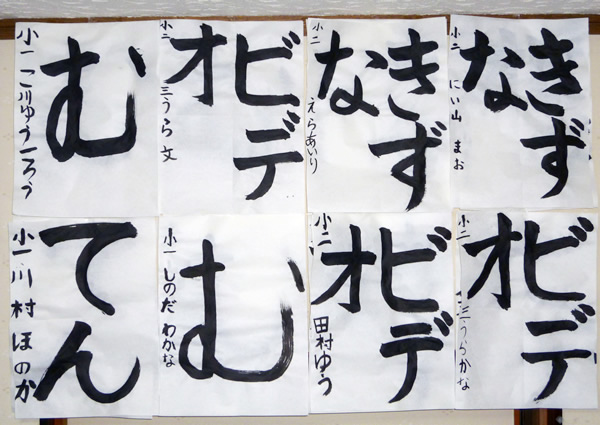 きず
な
小二 にい山 まお
きず
な
小二 えらあいり
ビデ
オ
小二 三うら 文
む
小一 こ川ゆう一ろう
ビデ
オ
小二 三うらかな
ビデ
オ
小二 田村ゆう
む
小一 しのだ わかな
てん
小一 川村ほのか